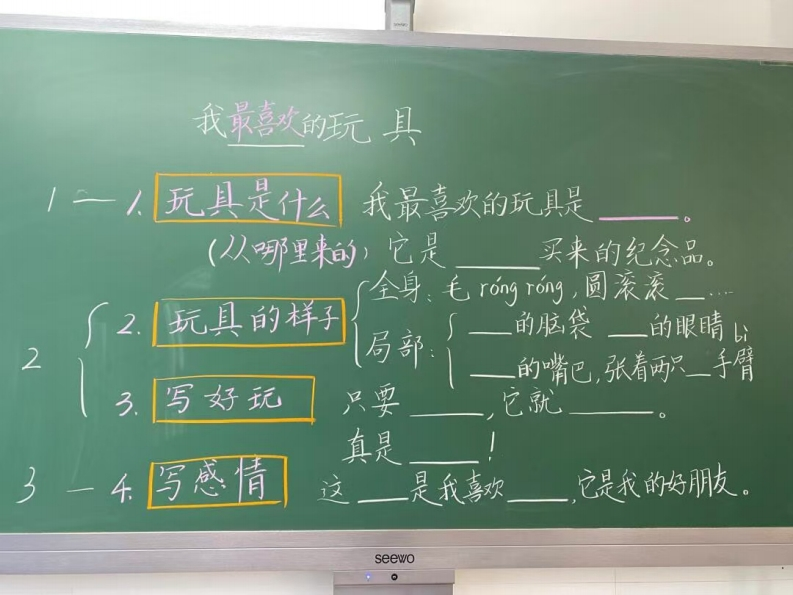 seewo
我最喜欢的玩具
1 — 1. 玩具是什么 我最喜欢的玩具是______。
(从哪里来的) 它是______买来的纪念品。
全身:毛róng róng,圆滚滚__……
2 2. 玩具的样子 局部: ___的脑袋 ___的眼睛
bì
___的嘴巴,张着两只__手臂
3. 写好玩 只要_____,它就______。
真是_____!
3 — 4. 写感情 这____是我喜欢____,它是我的好朋友。
seewo